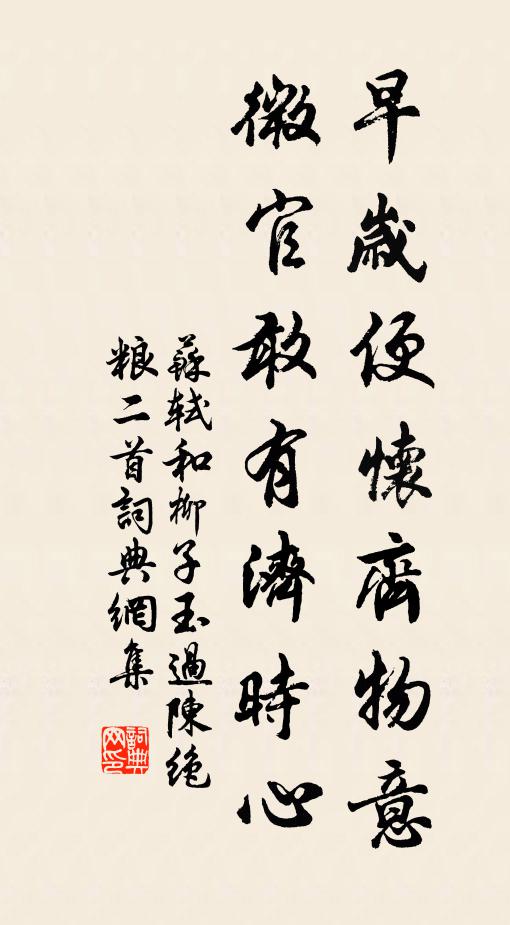 早歲便懷齊物意
微官敢有濟時心
蘇軾和柳子玉過陳絕
粮二首詞典網集
詞典
网印